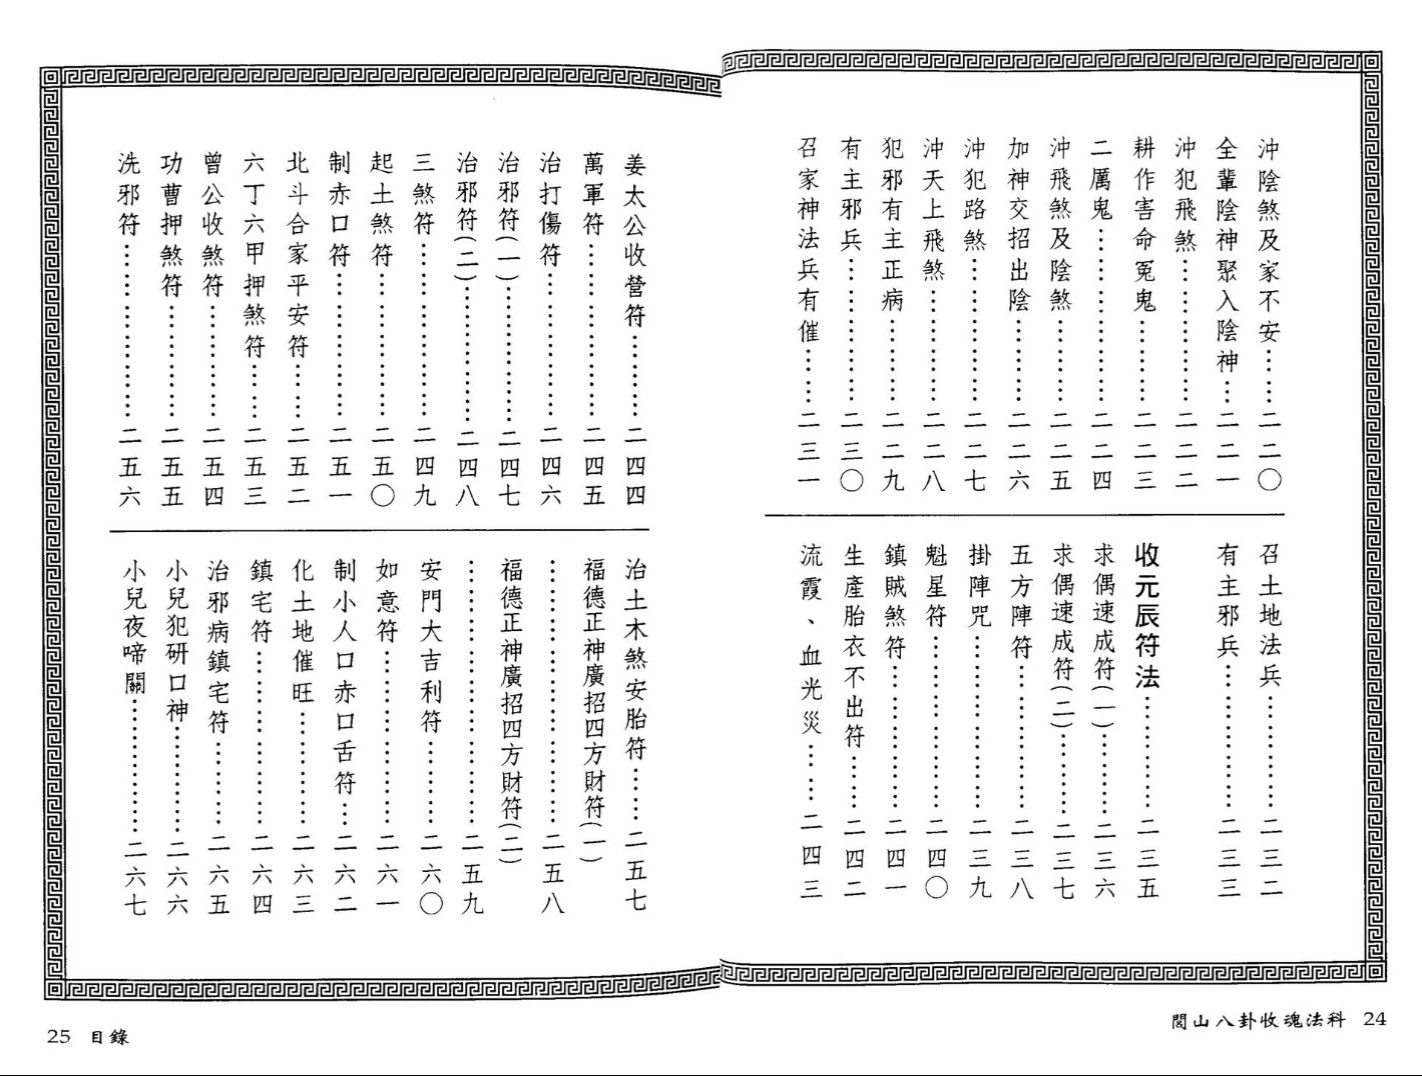 沖陰煞及家不安……二二〇
全輩陰神聚入陰神…二二一
沖犯飛煞…………二二二
耕作害命冤鬼………二二三
二厲鬼……………二二四
沖飛煞及陰煞………二二五
加神交招出陰………二二六
沖犯路煞…………二二七
沖天上飛煞…………二二八
犯邪有主正病………二二九
有主邪兵…………二三〇
召家神法兵有催……二三一
召土地法兵…………二三二
有主邪兵…………二三三
收元辰符法…………二三五
求偶速成符(一)……二三六
求偶速成符(二)……二三七
五方陣符…………二三八
掛陣咒……………二三九
魁星符……………二四〇
鎮賊煞符…………二四一
生產胎衣不出符……二四二
流霞、血光災………二四三
閭山八卦收魂法科 24
姜太公收營符………二四四
萬軍符……………二四五
治打傷符…………二四六
治邪符(一)…………二四七
治邪符(二)…………二四八
三煞符……………二四九
起土煞符…………二五〇
制赤口符…………二五一
北斗合家平安符……二五二
六丁六甲押煞符……二五三
曾公收煞符…………二五四
功曹押煞符…………二五五
洗邪符……………二五六
治土木煞安胎符……二五七
福德正神廣招四方財符(一)
……………………二五八
福德正神廣招四方財符(二)
……………………二五九
安門大吉利符………二六〇
如意符……………二六一
制小人口赤口舌符…二六二
化土地催旺…………二六三
鎮宅符……………二六四
治邪病鎮宅符………二六五
小兒犯研口神………二六六
小兒夜啼關…………二六七
25 目錄